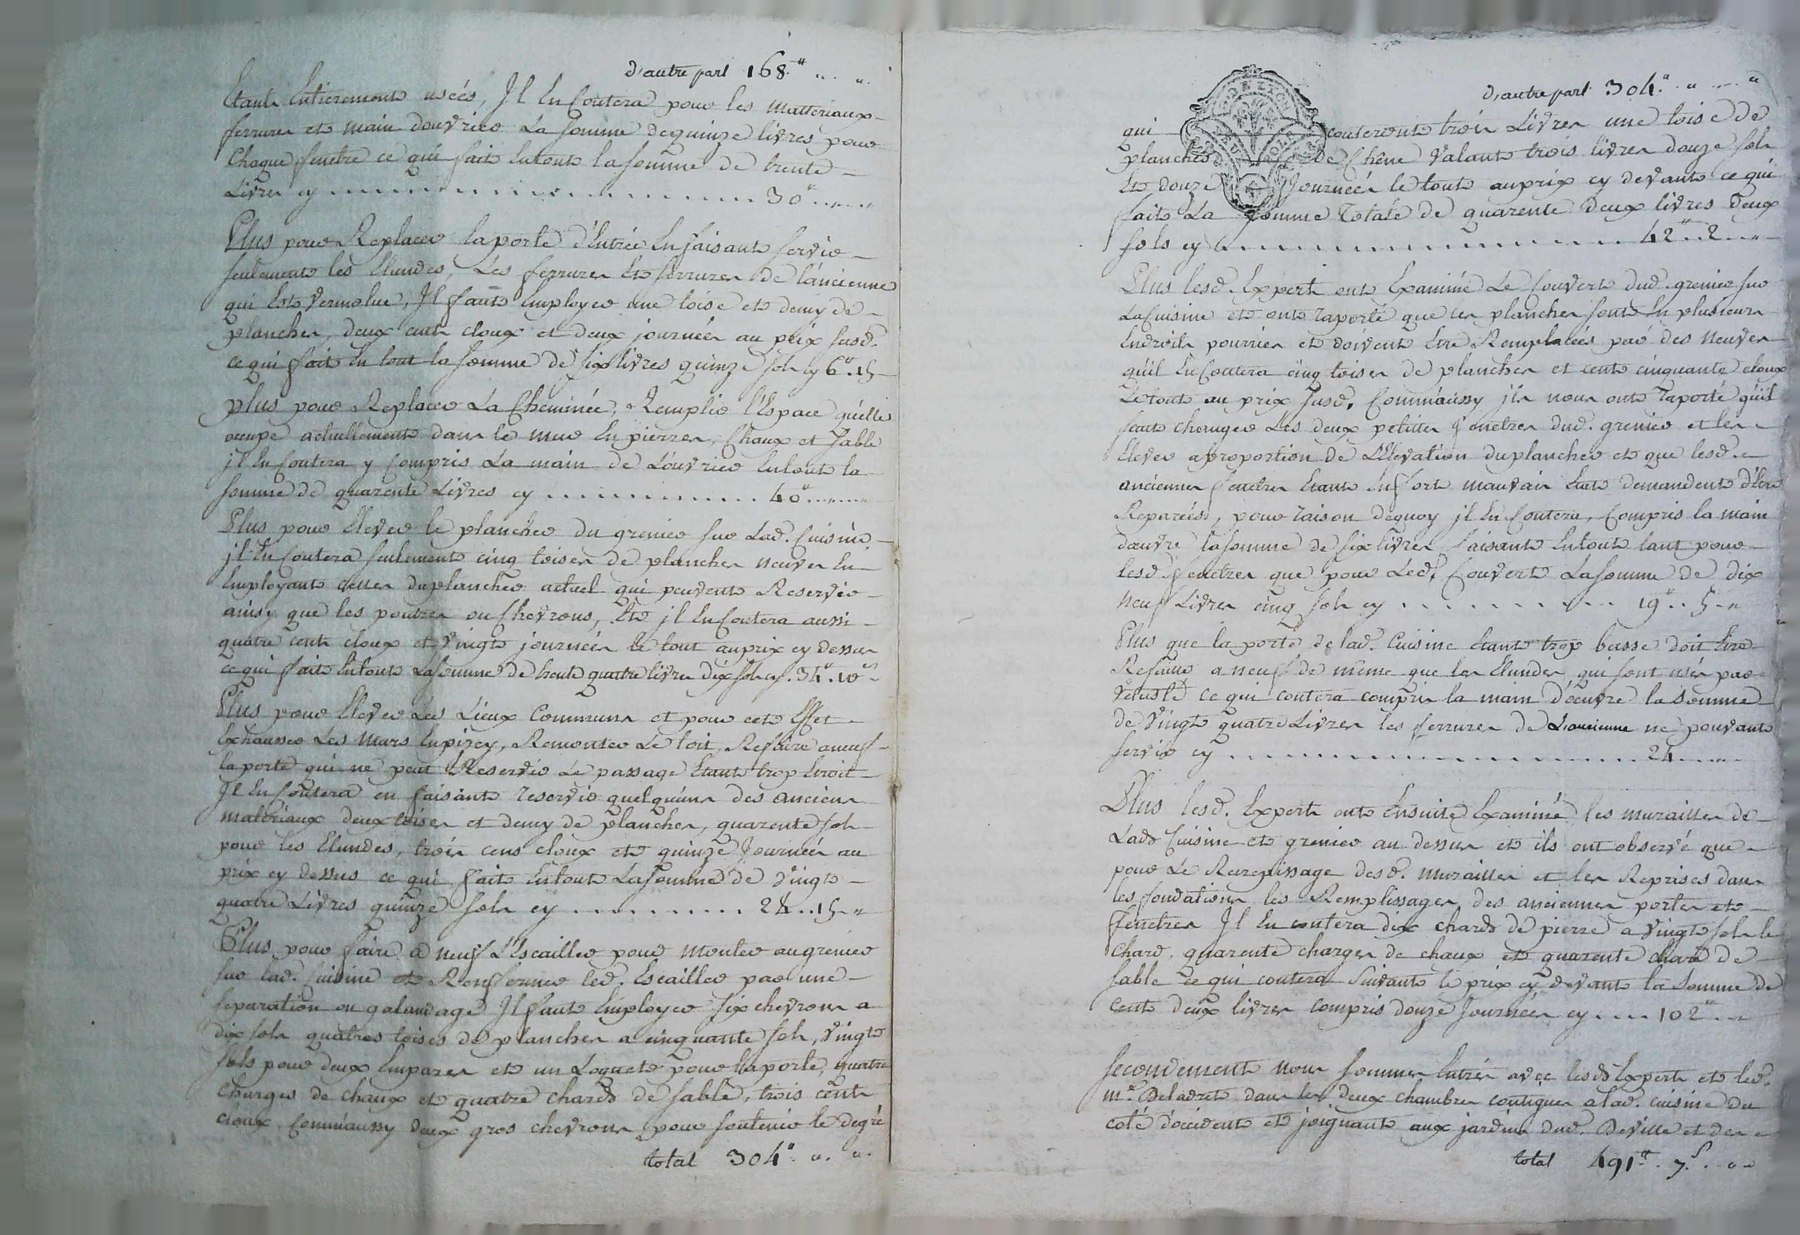 d'autre part 168.# .. ..
Etants Entierements usées, Il En Coutera pour les matteriaux
ferrures ets main d'ouvries La somme de quinze livres pour
Chaque fenetre ce qui fait Entouts la somme de trente
Livres cy ............ 30# .. ..
Plus pour Replacer la porte d'Entrée En faisants servir
seulements les Elundes, Les ferrures Ets serrures de l'ancienne
qui Ests vermolue, Il faut Employer une toise ets demy de
planches, deux cents cloux et deux journées au prix susd.
ce qui fait En tout la somme de six livres quinze sols cy 6# . 15
plus pour Replacer La Cheminée, Remplir l'Espace qu'elle
occupe actuellements dans le mur En pierres, Chaux et sable
jl En Coutera y Compris La main de L'ouvrier Entouts la
somme de quarente Livres cy ............ 40# .. ..
Plus pour Elever le plancher du grenier sur Lad. Cuisine
jl En Coutera seulements cinq toises de planches neuves En
Employants celles du plancher actuel qui peuvents Reservir
ainsy que les poutres ou Chevrons, Ets jl En Coutera aussi
quatre cents cloux ets Vingts journées le tout au prix cy dessus
ce qui faits Entouts La somme de trente quatre livres dix sols cy . 34# . 10s
Plus pour Elever Les Lieux Communs et pour cets Effet
Exhausser Les murs En pizey, Remonter Le toit, Refaire a neuf
la porte qui ne peut Reservir Le passage Etants trop Etroit
Il En Coutera en faisants reservir quelqu'uns des anciens
materiaux deux toises et demy de planches, quarente sols
pour les Elundes, trois cens cloux ets quinze Journées au
prix cy dessus ce qui faits Entouts La somme de Vingts
quatre Livres quinze sols cy ............ 24 .. 15 .. "
Plus pour faire a neuf L'Escaillier pour monter au grenier
sur lad. Cuisine ets Renfermer led. Escaillier par une
separation ou galandage Il faut Employer six chevrons a
dix sols quatres toises de planches a cinquante sols, Vingts
sols pour deux Empares ets un Loquets pour la porte, quatre
Charges de chaux ets quatre chards de sable, trois cents
cloux Comm'aussy deux gros chevrons pour soutenir le degré
total 304# .. ..
d'autre part 304# .. ..
qui couterents trois Livres une toise de
planches de Chêne Valants trois livres douze sols
Ets douze Journées le touts au prix cy devants ce qui
faits La somme Totale de quarente Deux livres Deux
sols cy ............ 42# .. 2 ..
Plus lesd. Experts onts Examiné Le Couverts dud. grenier sur
La Cuisine ets onts raporté que les planches sonts En plusieurs
Endroits pourries ets doivents Etre Remplacées par des neuves
qu'il En Coutera cinq toises de planches et cents cinquante cloux
Le touts au prix susd. Comm'aussy jls nous onts raporté qu'il
faut changer Les deux petittes fenetres dud. grenier et les
Elever a proportion de L'Elevation du plancher ets que lesd.
anciennes fenetres Etants En forts mauvais Etats demandents d'Etre
Reparées, pour raison de quoy jl En Coutera, Compris la main
d'œuvre la somme de six livres faisants Entouts tant pour
lesd. fenetres que pour Led. Couverts La somme de dix
neuf Livres cinq sols cy ............ 19# .. 5 .. "
Plus que la porte de lad. Cuisine Etants trop basse doit Etre
Refaitte a neuf de même que les Elundes qui sont usées par
vetusté ce qui coutera compris la main d'œuvre la somme
de Vingts quatre Livres les ferrures de L'ancienne ne pouvants
servir cy ............ 24 .. ..
Plus lesd. Experts onts Ensuite Examiné les murailles de
Ladd Cuisine ets grenier au dessus ets ils ont observé que
pour Le Recrepissage desd. murailles et les Reprises dans
les fondations les Remplissages des anciennes portes ets
fenetres Il En coutera dix chards de pierre a Vingts sols le
Chard, quarente charges de chaux ets quarente chards de
sable ce qui coutera suivants le prix cy devants la somme de
Cents deux livres compris douze Journées cy .... 102# ..
Secondements nous sommes Entrés avec lesdd Experts ets led.
mr. Deladrets dans les deux chambres contigues a lad. cuisine du
coté d'occidents ets joignants aux jardins dud. Deville et des
total 491# . 7s . ..